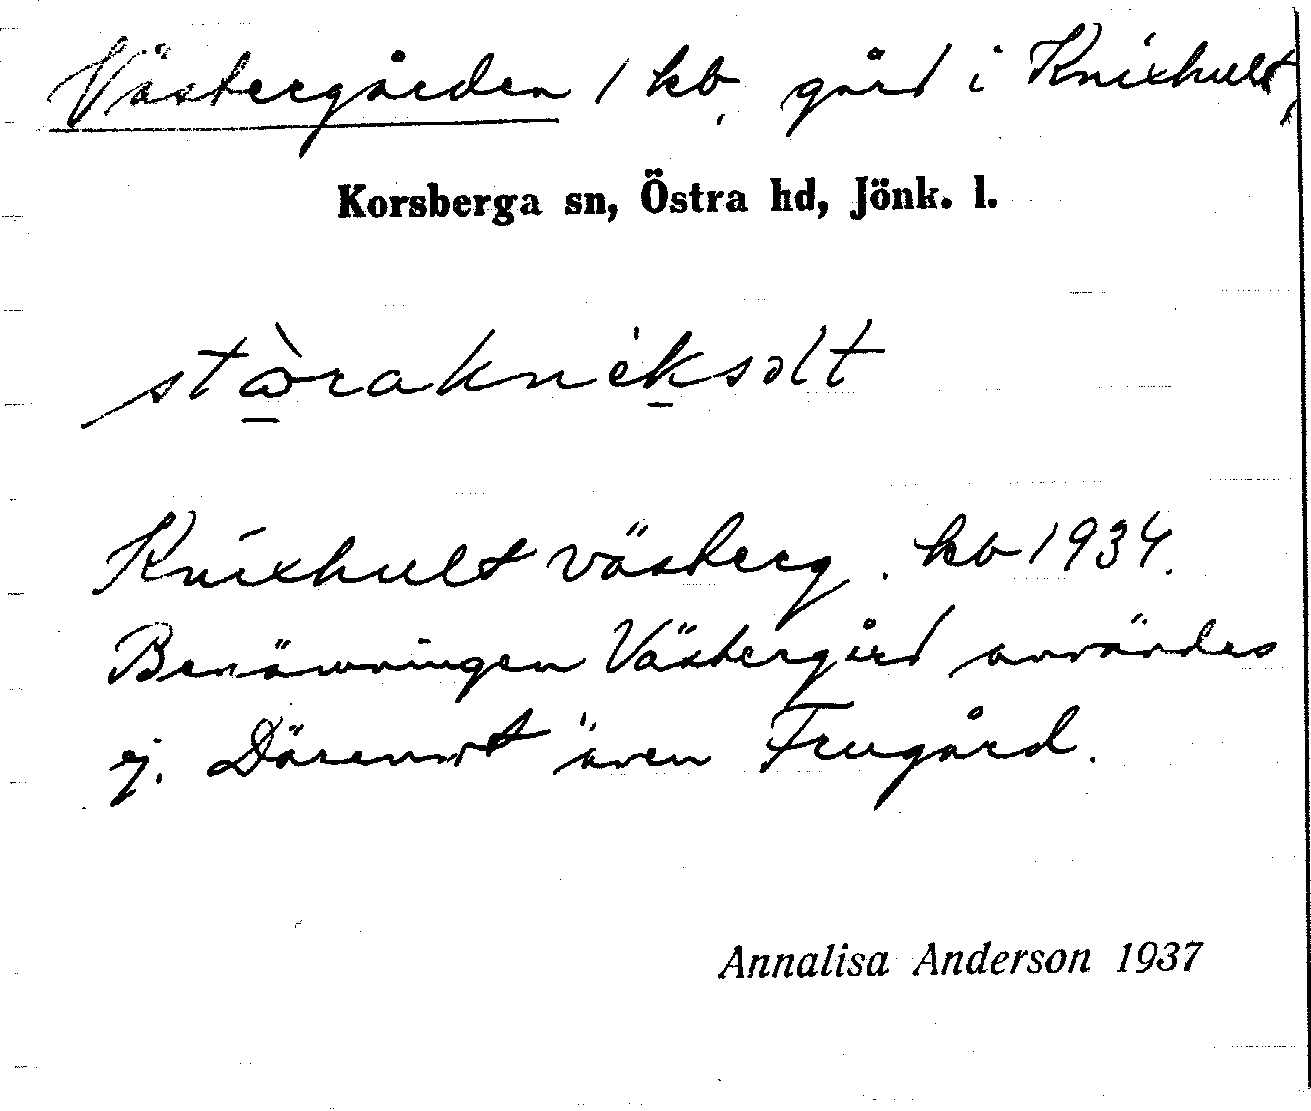 Västergården / kb, gård i Knixhult,
Korsberga sn, Östra hd, Jönk. l.
Knixhult västerg. kb 1934.
Benämningen Västergård användes
ej. Däremot även Frugård.
Annalisa Anderson 1937